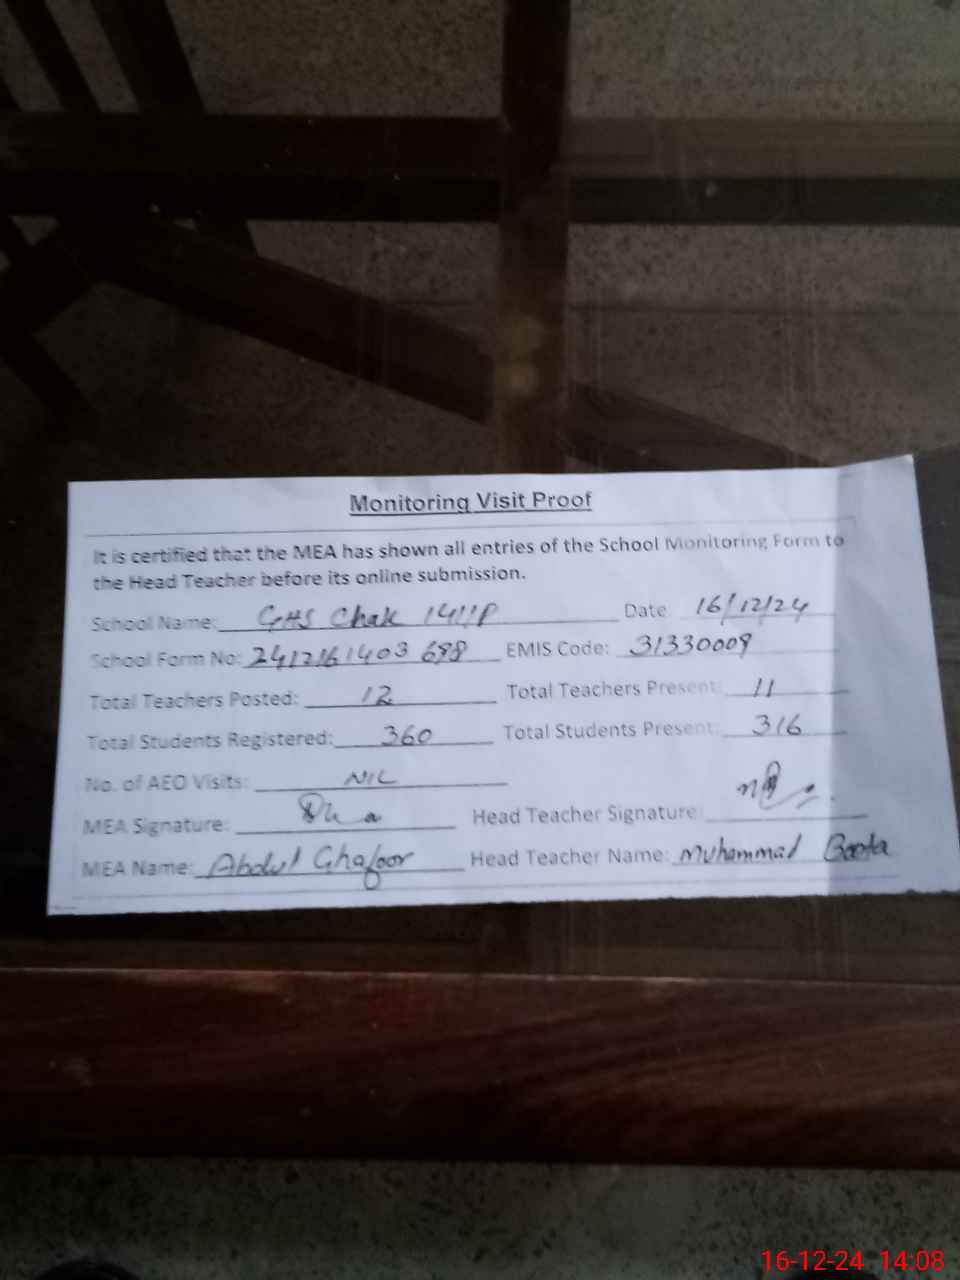 Monitoring Visit Proof
It is certified that the MEA has shown all entries of the School Monitoring Form to
the Head Teacher before its online submission.
School Name: GHS Chak 141/P Date: 16/12/24
School Form No: 2412161403 698 EMIS Code: 31330009
Total Teachers Posted: 12 Total Teachers Present: 11
Total Students Registered: 360 Total Students Present: 316
No. of AEO Visits: NIL
MEA Signature: Head Teacher Signature:
MEA Name: Abdul Ghafoor Head Teacher Name: Muhammad Boota
16-12-24 14:08